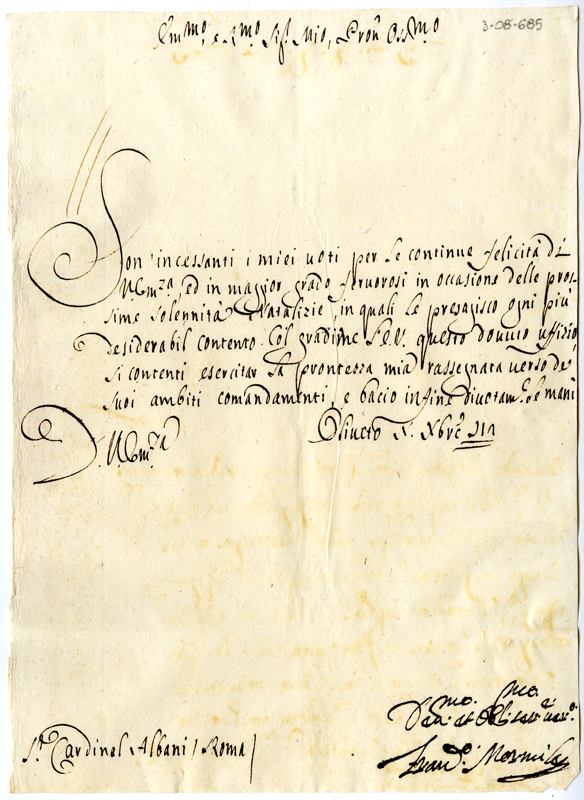 3-08-685
Em.mo, e R.mo Sig.r Mio, Pron Oss.mo
Son' incessanti i miei voti per le continue felicità di
V. Em.za, ed in maggior grado fervorosi in occasione delle pros-
sime Solennità Natalizie, in quali Le presagisco ogni più
desiderabil contento. Col gradirne l'E.V. questo dovuto uffizio
si contenti esercitar la prontezza mia rassegnata verso de'
suoi ambiti comandamenti, e bacio in fine divotam.e le mani
D. V. Em.za Oliveto Xbre
Div.mo et Obl.mo
S.r Cardinal Albani / Roma /
Mormile